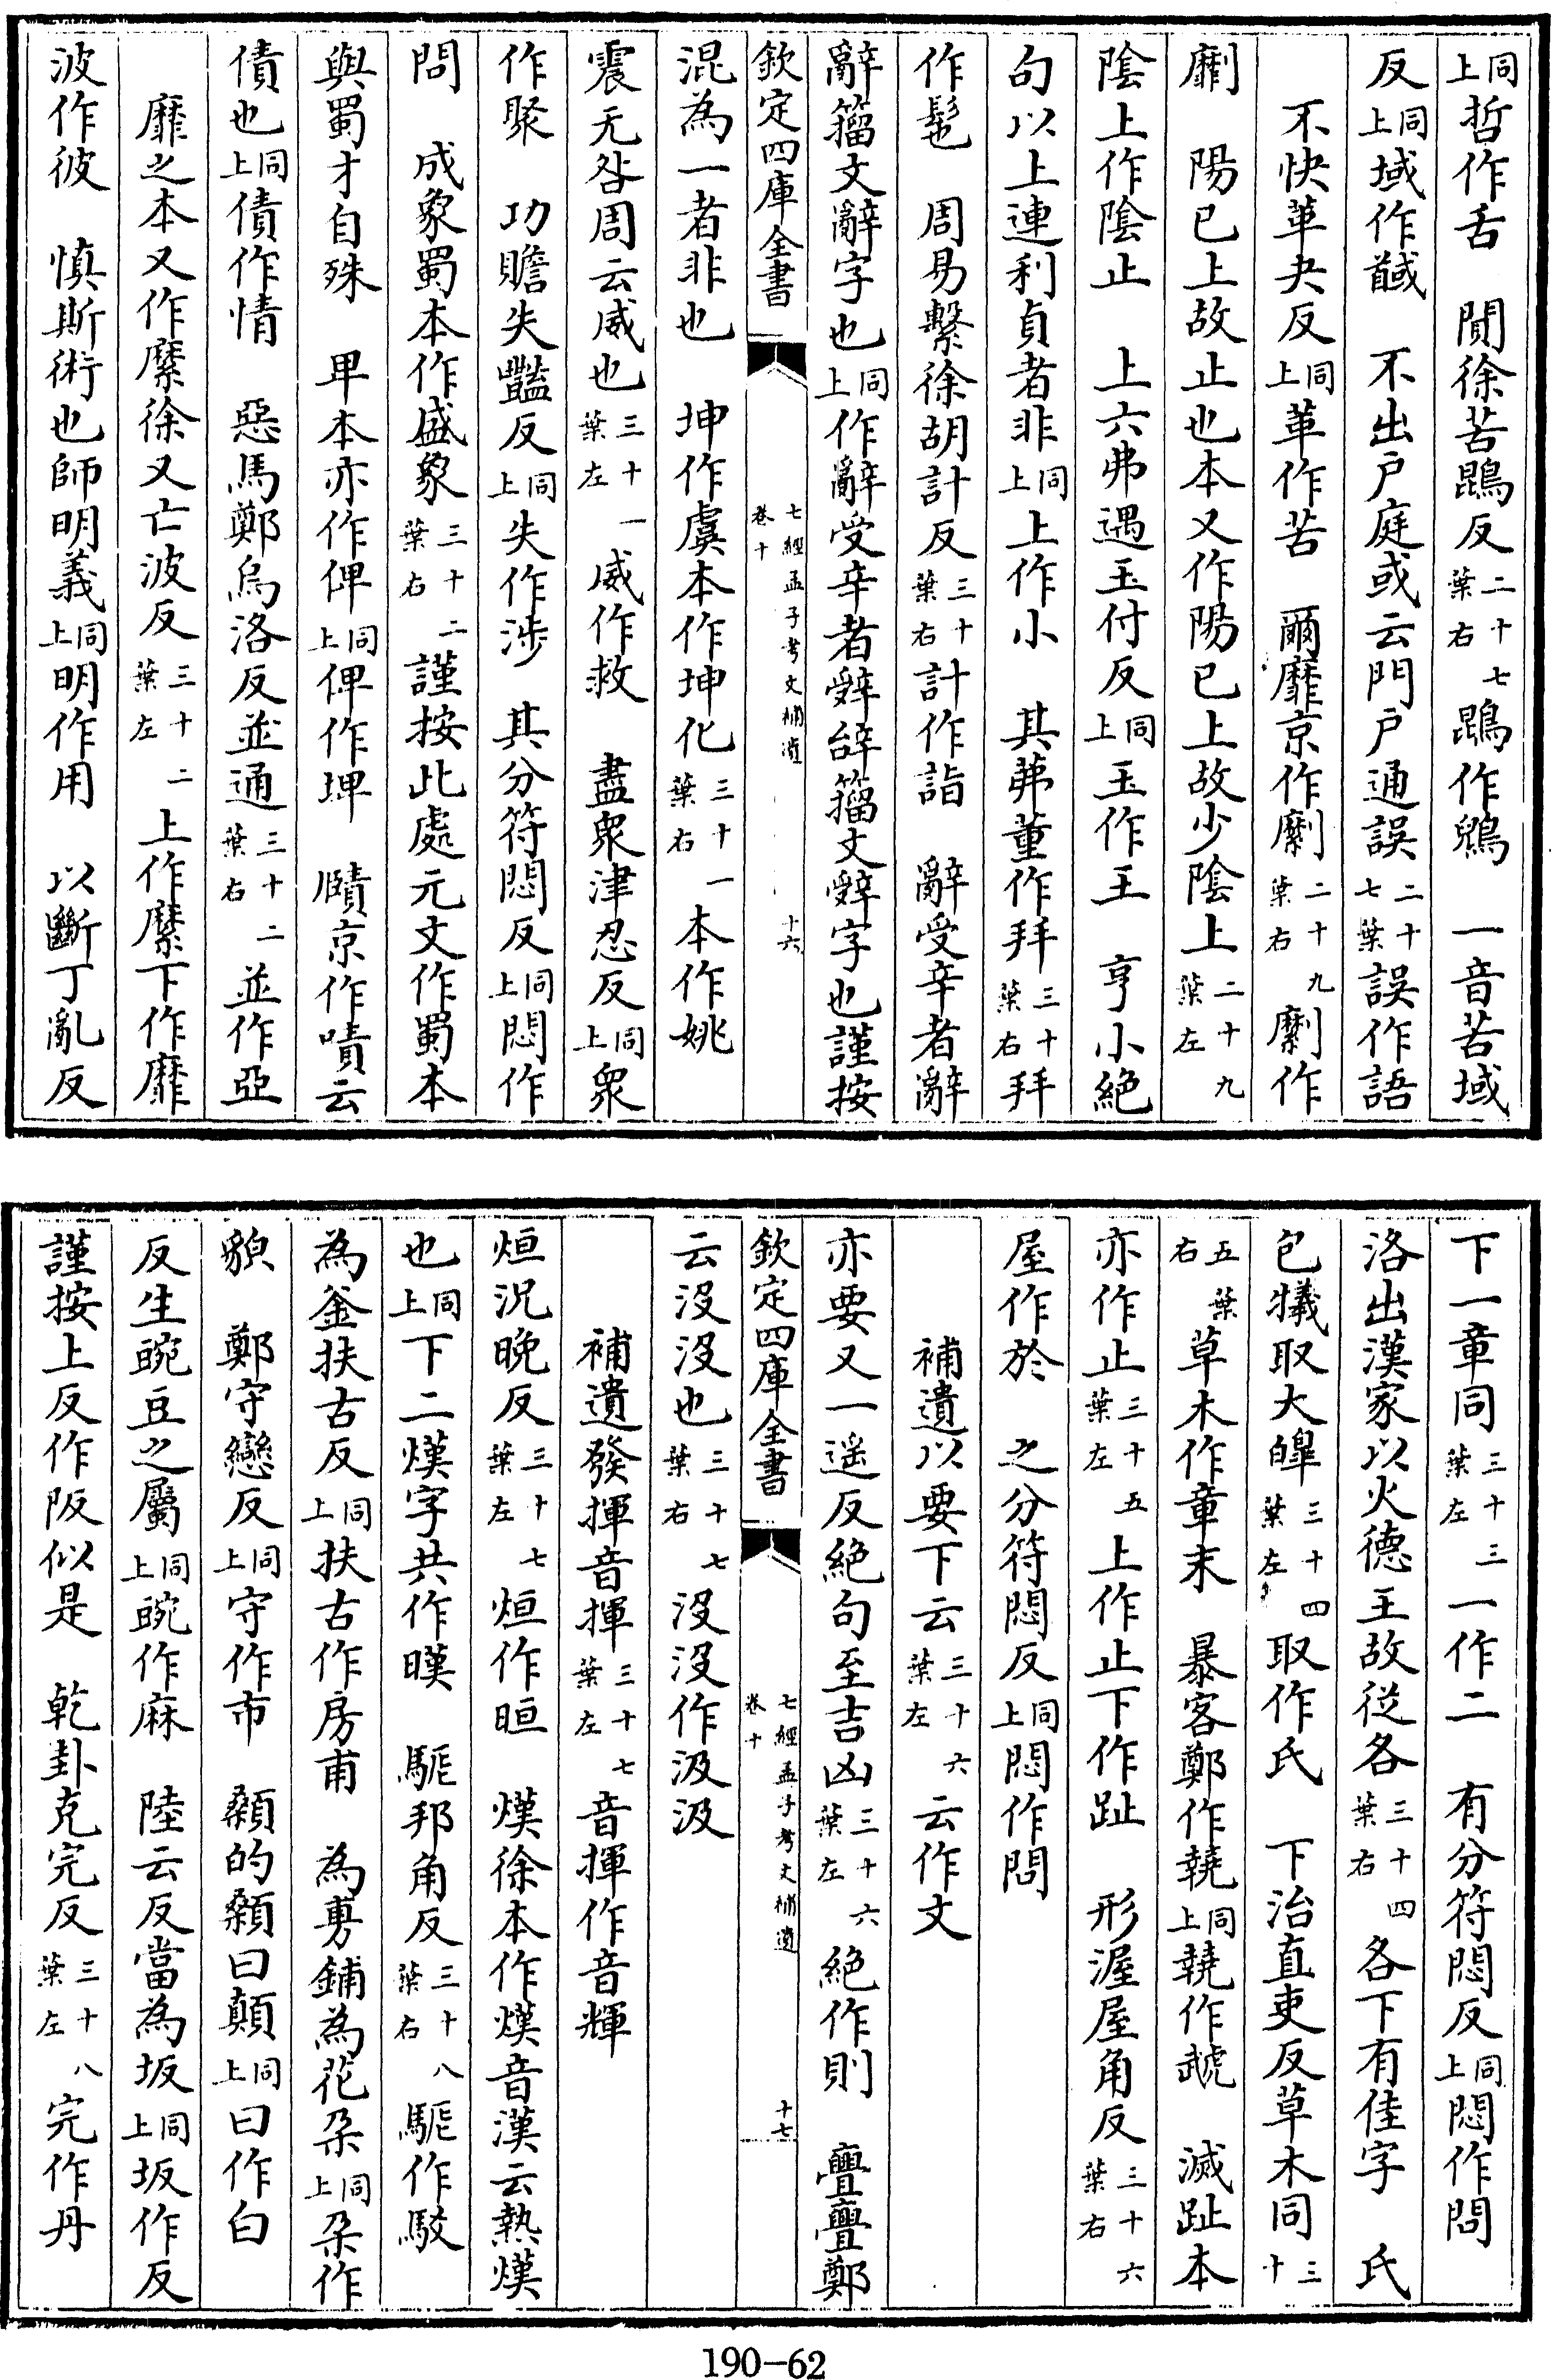 同上哲作舌　閴徐苦鶪反二十七葉右鶪作鵙　一音苦域
反同上域作馘　不出户庭或云門户通誤二十七葉誤作語
不快革夬反同上革作苦　爾靡京作劘二十九葉右劘作
𠠭　陽已上故止也本又作陽已上故少陰上二十九葉左
陰上作陰止　上六弗遇玉付反同上玉作王　亨小絶
句以上連利貞者非同上上作小　其茀董作拜三十葉右拜
作髢　周易繫徐胡計反三十葉右計作詣　辭受辛者辭
辭籀文辭字也同上作辭受辛者辤辝籀文辤字也謹按
欽定四庫全書　七經孟子考文補遺卷十　十六
混為一者非也　坤作虞本作坤化三十一葉右本作姚
震无咎周云威也三十一葉左威作救　盡衆津忍反同上衆
作聚　功贍失豔反同上失作涉　其分符悶反同上悶作
問　成象蜀本作盛象三十二葉右謹按此處元文作蜀本
與蜀才自殊　𤰞本亦作俾同上俾作埤　賾京作嘖云
債也同上債作情　惡馬鄭烏洛反並通三十二葉右並作亞
靡之本又作縻徐又亡波反三十二葉左上作縻下作靡
波作彼　慎斯術也師明義同上明作用　以斷丁亂反
下一章同三十三葉左一作二　有分符悶反同上悶作問
洛出漢家以火德王故從各三十四葉右各下有佳字　氏
包犧取大皥三十四葉左取作氏　下治直吏反草木同三十
五葉右草木作章末　暴客鄭作𧯆同上𧯆作虣　滅趾本
亦作止三十五葉左上作止下作趾　形渥屋角反三十六葉右
屋作於　之分符悶反同上悶作問
補遺以要下云三十六葉左云作文
亦要又一遥反絶句至吉凶三十六葉左絶作則　亹亹鄭
欽定四庫全書　七經孟子考文補遺卷十　十七
云没没也三十七葉右没没作汲汲
補遺發揮音揮三十七葉左音揮作音輝
烜況晚反三十七葉左烜作晅　熯徐本作熯音漢云熱熯
也同上下二熯字共作暵　駹邦角反三十八葉右駹作駮
為釜扶古反同上扶古作房甫　為旉鋪為花朶同上朶作
貌　鄭守戀反同上守作市　顙的顙曰顛同上曰作白
反生豌豆之屬同上豌作麻　陸云反當為坂同上坂作反
謹按上反作阪似是　乾卦克完反三十八葉左完作丹
190-62